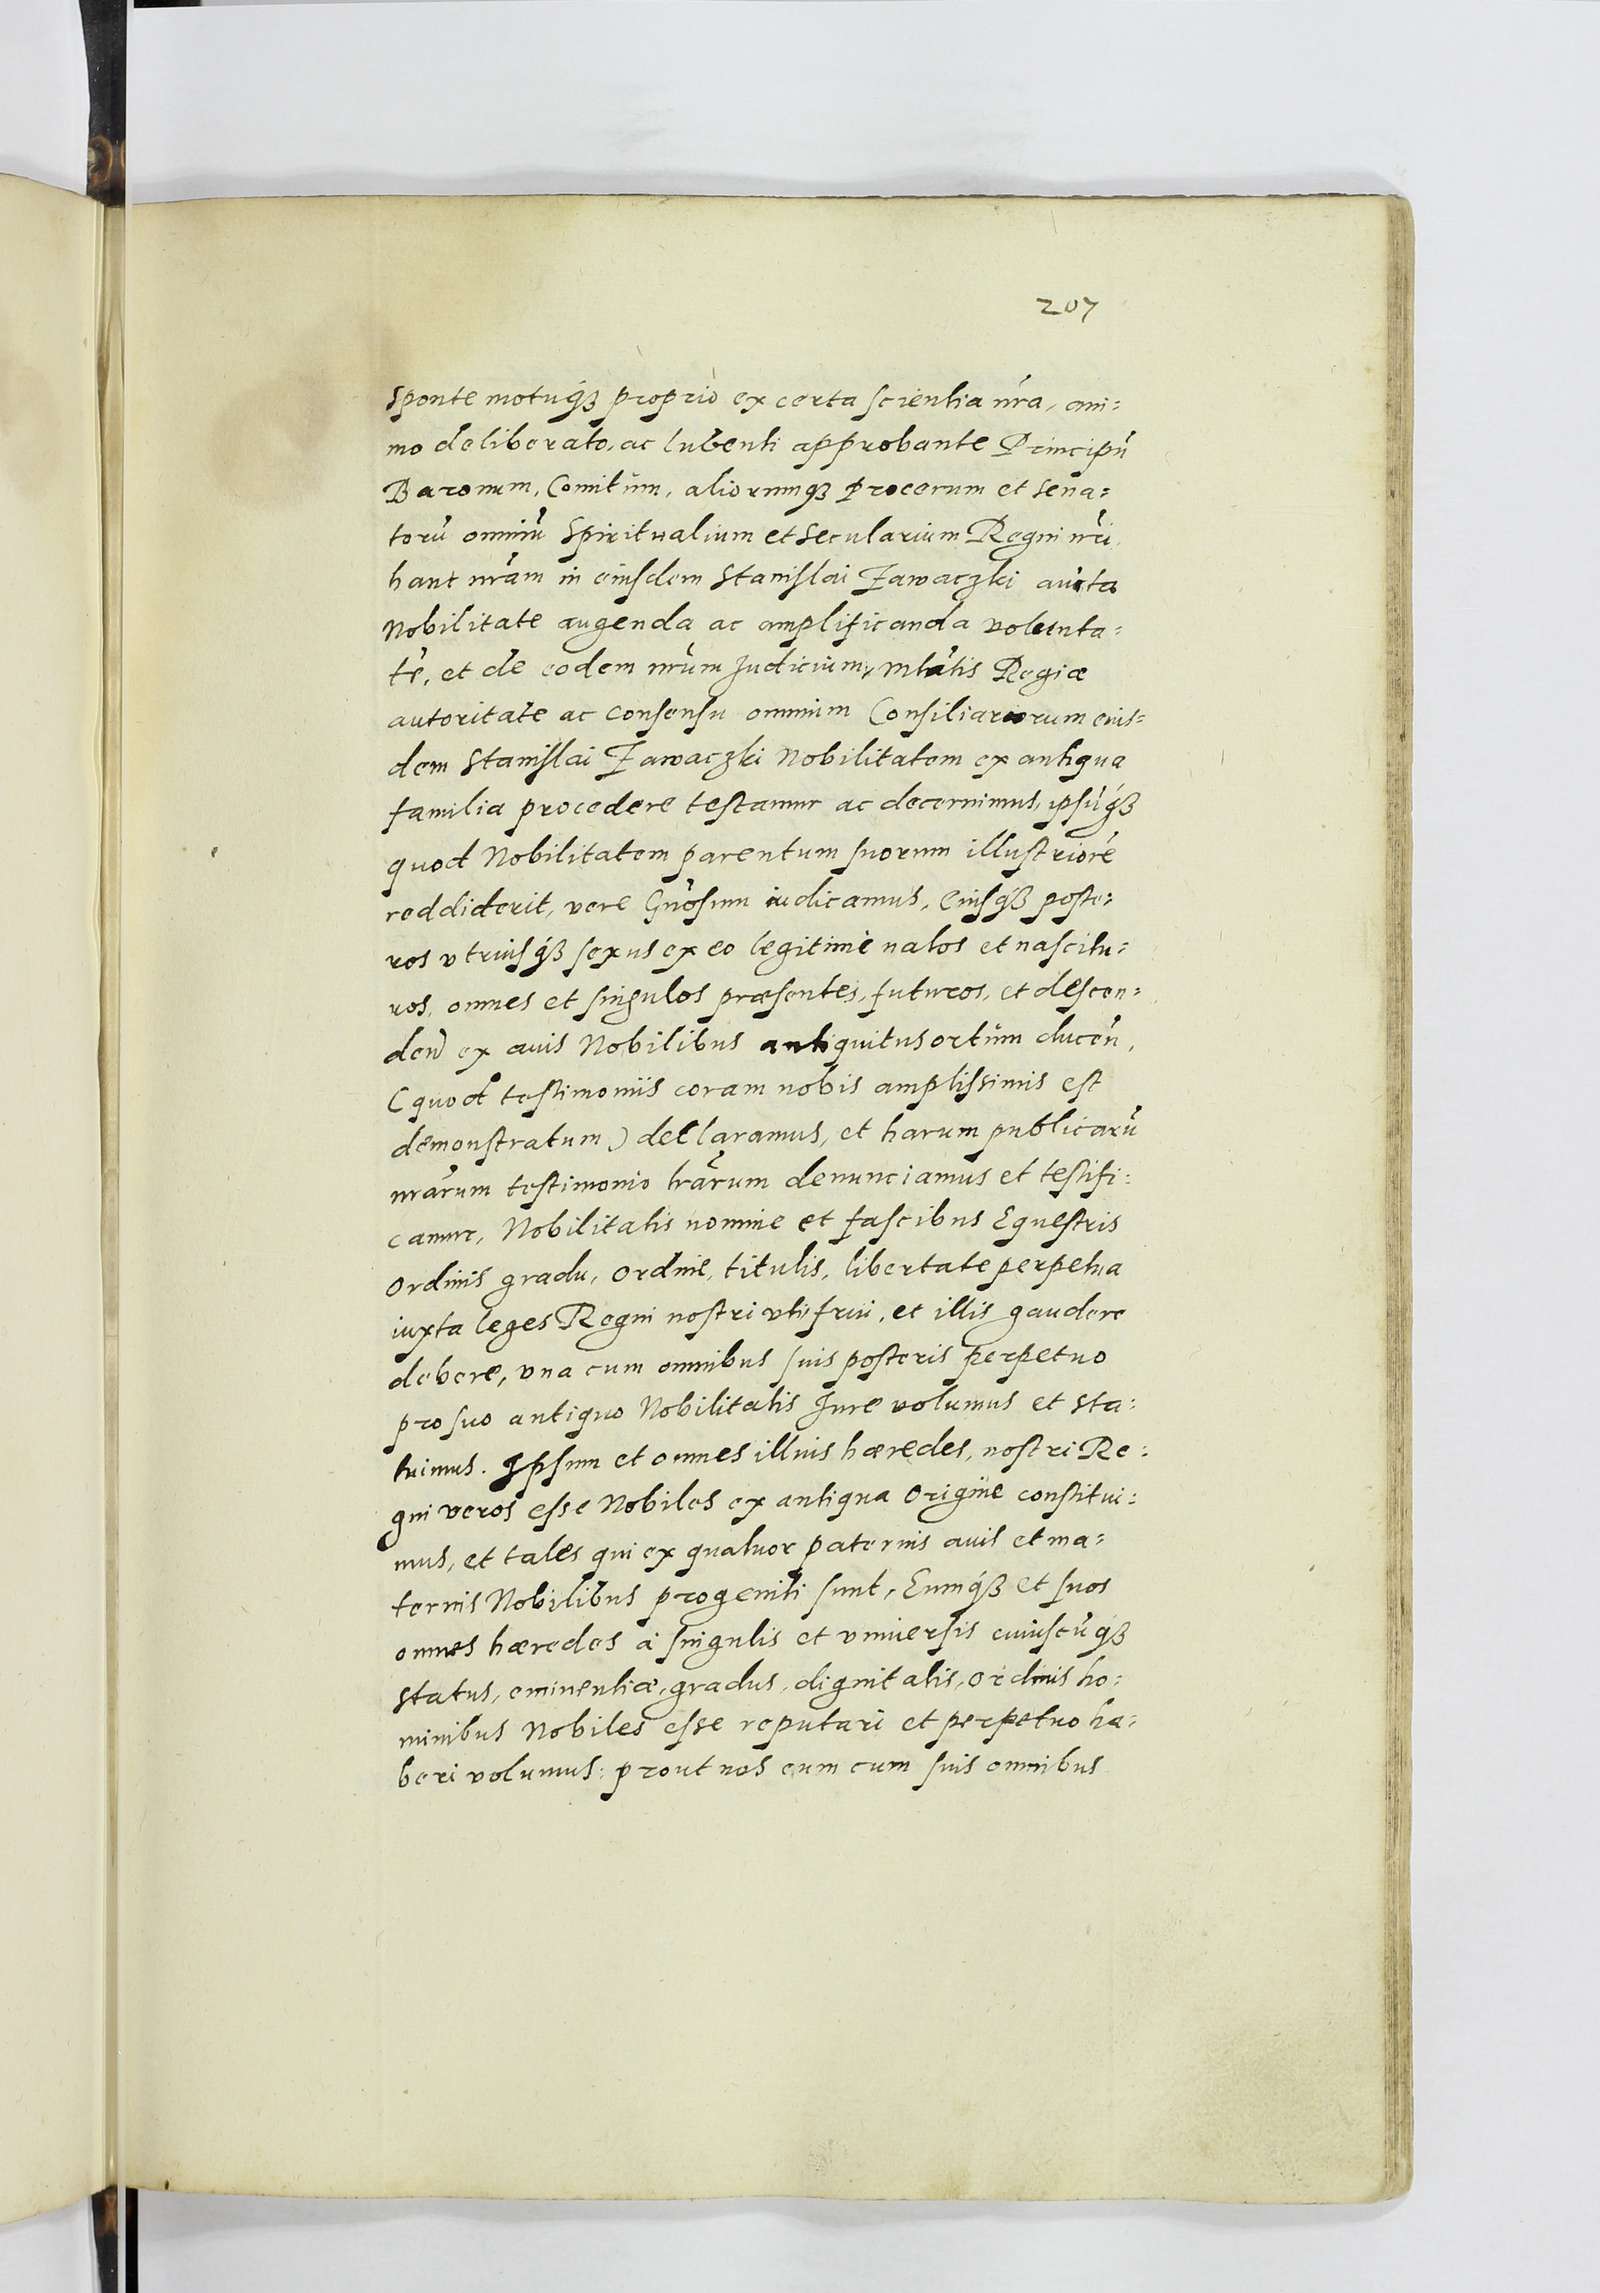 207
Sponte motuq₃ proprio ex certa scientia nr̃a, ani=
mo deliberato, ac lubenti approbante Principũ
Baronum, Comitũm, aliorumq₃ Procerum et Sena=
torũ omniũ Spiritualium et Secularium Regni nr̃i
hanc nr̃am in eiusdem Stanislai Zawaczki aucta
Nobilitate augenda ac amplificanda volunta=
tẽ, et de eodem nr̃um Judicium, Mtãtis Regiæ
autoritate ac consensu omnium Consiliariorum eius=
dem Stanislai Zawaczki Nobilitatem ex antiqua
familia procedere testamur ac decernimus, ipsũq₃
quod Nobilitatem parentum suorum illustriorẽ
reddiderit, vere Gnõsum iudicamus, Eiusq₃ poste=
ros vtriusq₃ sexus ex eo legitimè natos et nascitu=
ros, omnes et singulos præsentes, futuros, et descen=
deñ ex auis Nobilibus antiquitus ortũm ducẽn,
(quod testimonijs coram nobis amplissimis est
demonstratum) declaramus, et harum publicarũ
nr̃arum testimonio lr̃arum denunciamus et testifi=
camur, Nobilitatis nomine et fascibus Equestris
Ordinis gradu, ordine, titulis, libertate perpetua
iuxta leges Regni nostri vti frui, et illis gaudere
debere, vna cum omnibus suis posteris perpetuo
pro suo antiquo Nobilitatis Jure volumus et sta=
tuimus. Ipsum et omnes illius hæredes, nostri Re=
gni veros esse Nobiles ex antiqua Origine constitui=
mus, et tales qui ex quatuor paternis auis et ma=
ternis Nobilibus progeniti sunt, Eumq₃ et suos
omnes hæredes à singulis et vniuersis cuiuscũq₃
status, eminentiæ, gradus, dignitatis, ordinis ho=
minibus Nobiles esse reputari et perpetuo ha=
beri volumus: prout nos eum cum suis omnibus